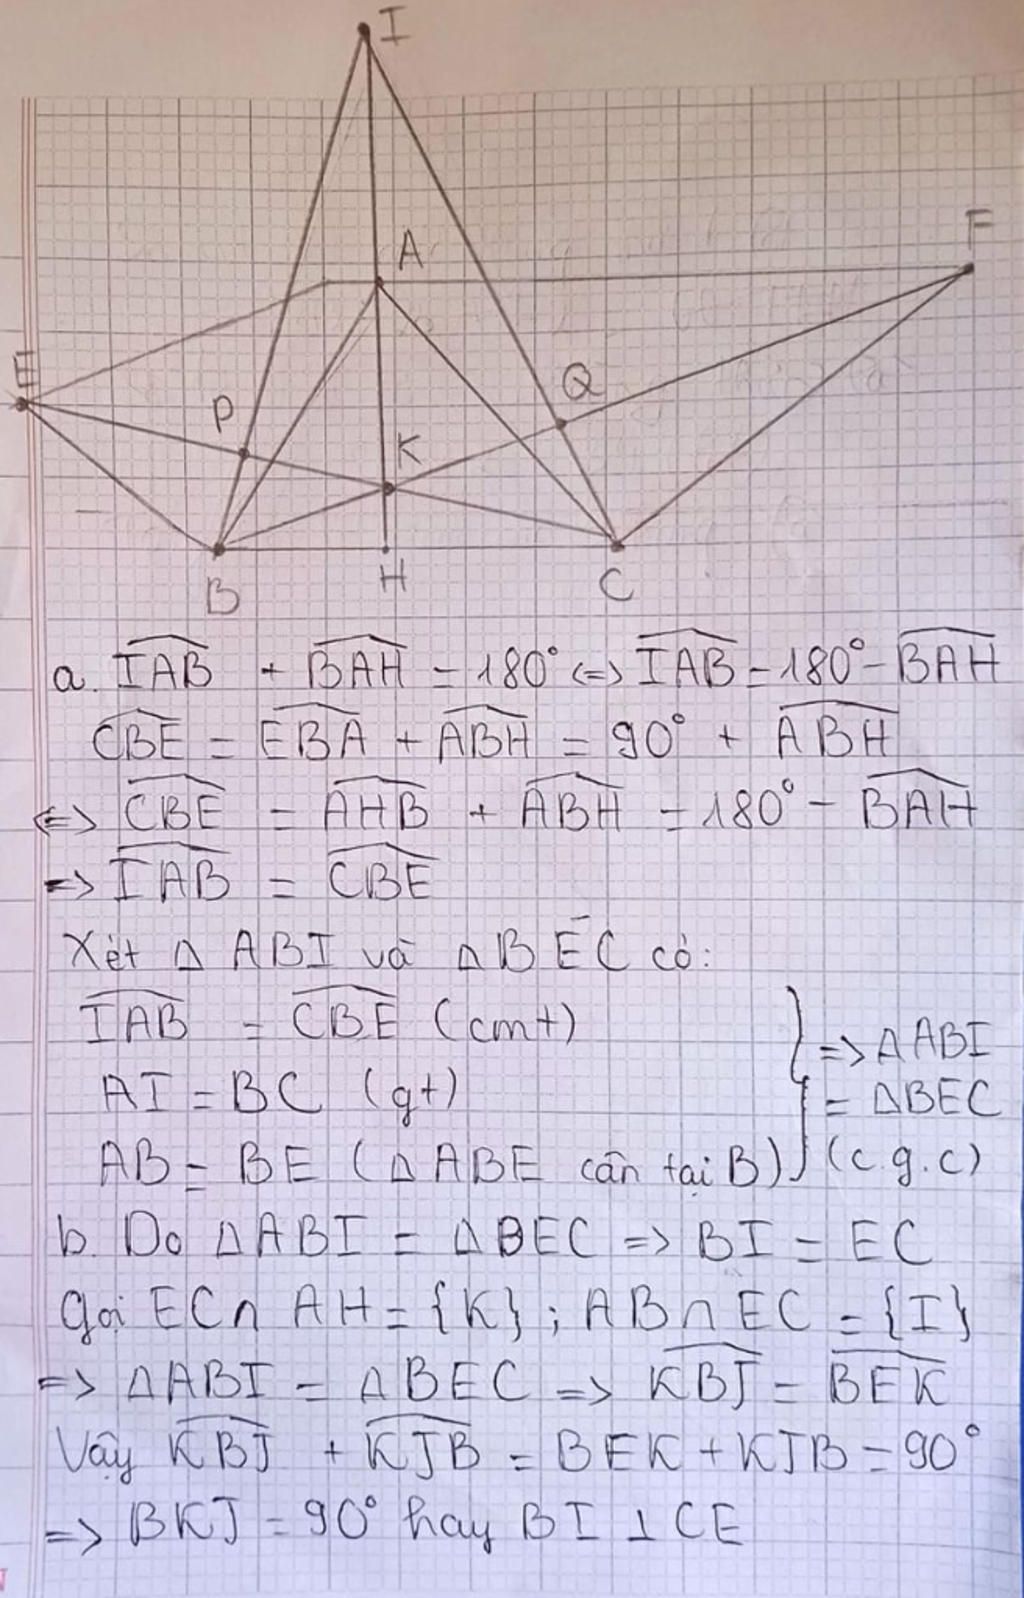 I
A
F
E
P
Q
K
B
H
C
a. IAB + BAH = 180° <=> IAB = 180° - BAH
CBE = EBA + ABH = 90° + ABH
<=> CBE = AHB + ABH = 180° - BAH
=> IAB = CBE
Xét △ ABI và △ BEC có:
IAB = CBE (cmt)
AI = BC (gt)
AB = BE (△ ABE cân tại B)
=> △ABI
= △BEC
(c.g.c)
b. Do △ABI = △BEC => BI = EC
Gọi EC∩ AH = {K} ; AB∩ EC = {I}
=> △ABI = △BEC => KBJ = BEK
Vậy KBJ + KJB = BEK + KJB = 90°
=> BKJ = 90° hay BI ⊥ CE